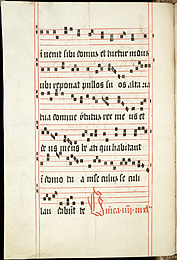 inuenit sibi domus et turtur nidus
ubi reponat pullos su os alta ria
tua domine virtutu rex me us et
de us meus be ati qui habitant
i domo tu a in secula se culi
lau dabunt te